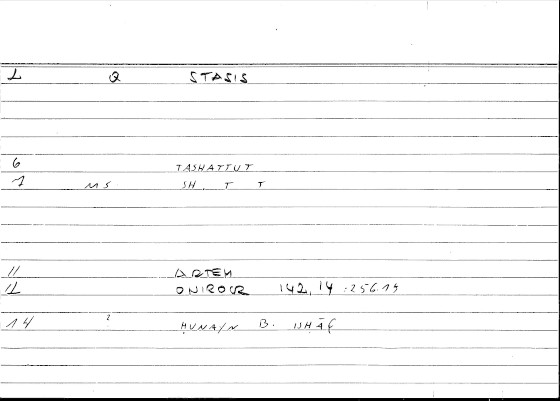 1 Q STASIS
6 TASHATTUT
7 MS SH. T T
11 ARTEM
12 ONIROCR 142,14 :256.14
14 2 ḤUNAYN B. ISḤĀQ